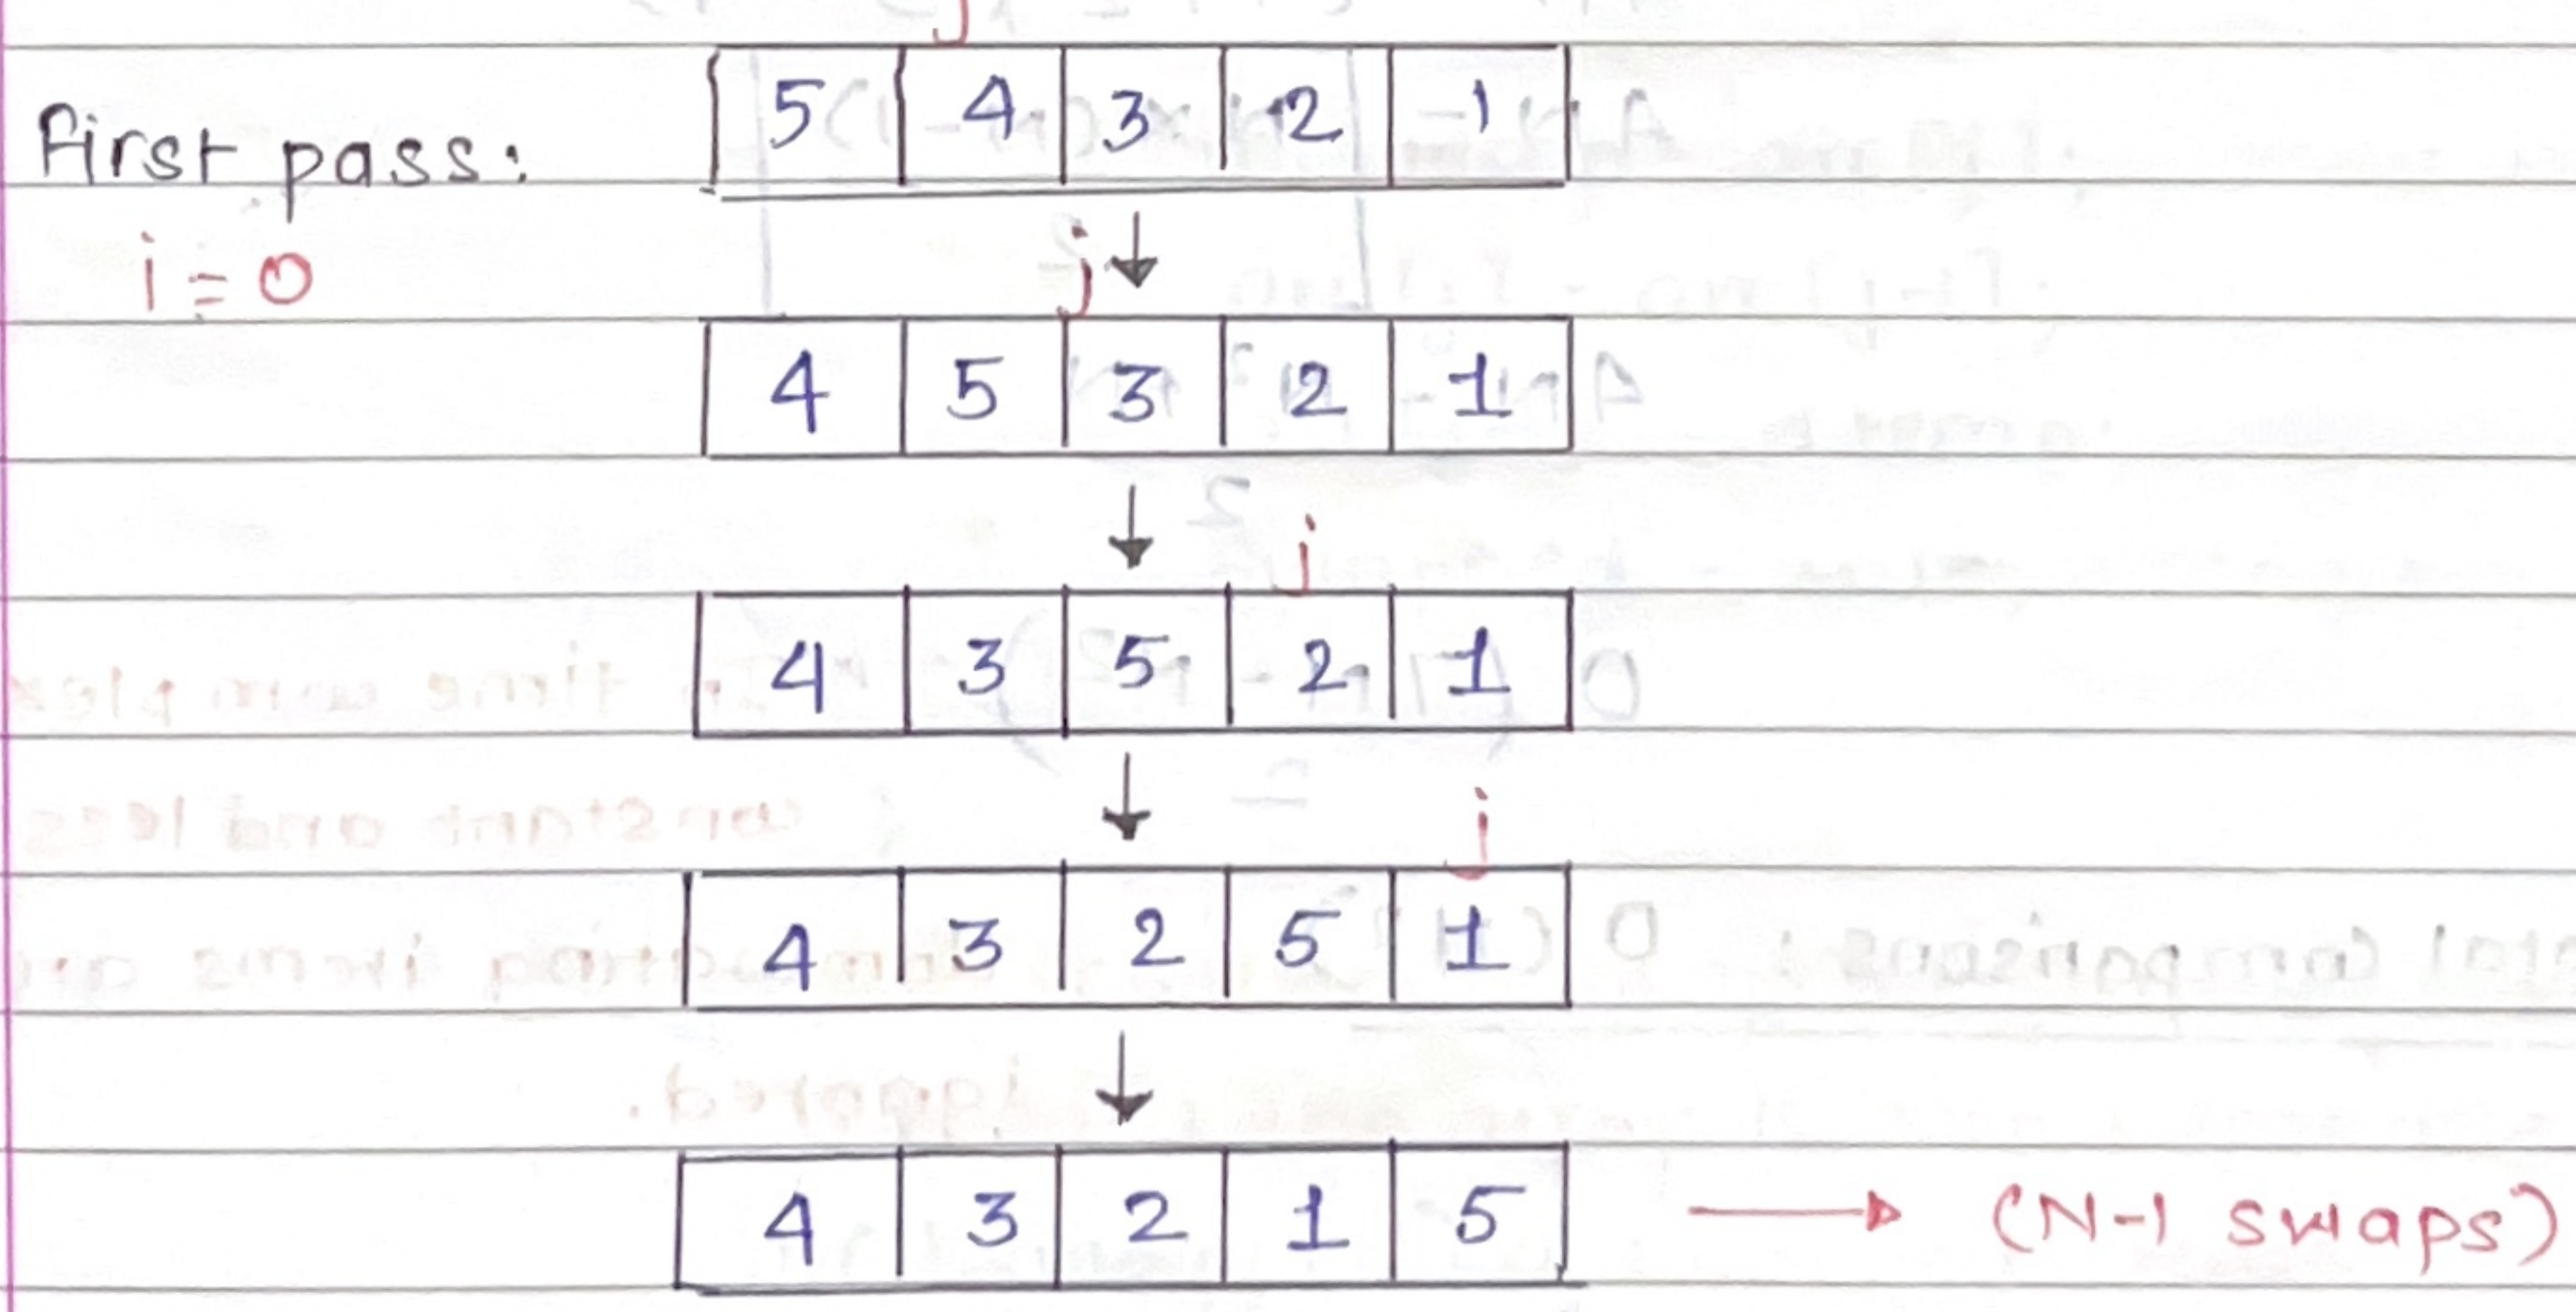 j
First pass: 5 4 3 2 1
i = 0
j
4 5 3 2 1
j
4 3 5 2 1
j
4 3 2 5 1
4 3 2 1 5 (N-1 swaps)